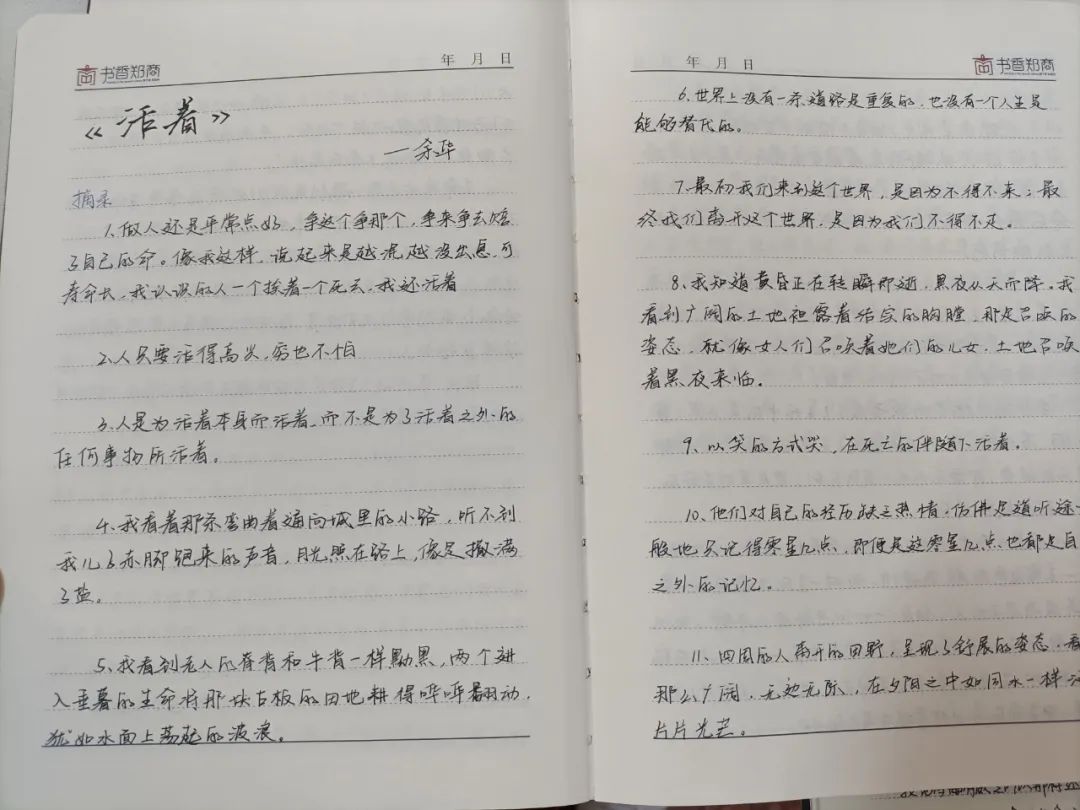 书香郑商
年 月 日
《活着》
—余华
摘录
1.做人还是平常点好,争这个争那个,争来争去赔
了自己的命。像我这样,说起来是越混越没出息,可
寿命长,我认识的人一个挨着一个死去,我还活着
2.人只要活得高兴,穷也不怕
3.人是为活着本身而活着,而不是为了活着之外的
任何事物所活着。
4.我看着那条弯曲着通向城里的小路,听不到
我儿子赤脚跑来的声音,月光照在路上,像是撒满
了盐。
5.我看到老人的脊背和牛背一样黝黑,两个进
入垂暮的生命将那块古板的田地耕得哗哗翻动,
犹如水面上荡起的波浪。
年 月 日
书香郑商
6.世界上没有一条道路是重复的,也没有一个人生是
能够替代的。
7.最初我们来到这个世界,是因为不得不来;最
终我们离开这个世界,是因为我们不得不走。
8、我知道黄昏正在转瞬即逝,黑夜从天而降。我
看到广阔的土地袒露着结实的胸膛,那是召唤的
姿态,就像女人们召唤着她们的儿女,土地召唤
着黑夜来临。
9、以笑的方式哭,在死亡的伴随下活着。
10、他们对自己的经历缺乏热情,仿佛是道听途
般地只记得零星几点,即便是这零星几点也都是自
之外的记忆。
11、四周的人离开的田野,呈现了舒展的姿态,看
那么广阔,无边无际,在夕阳之中如同水一样
片片光芒。